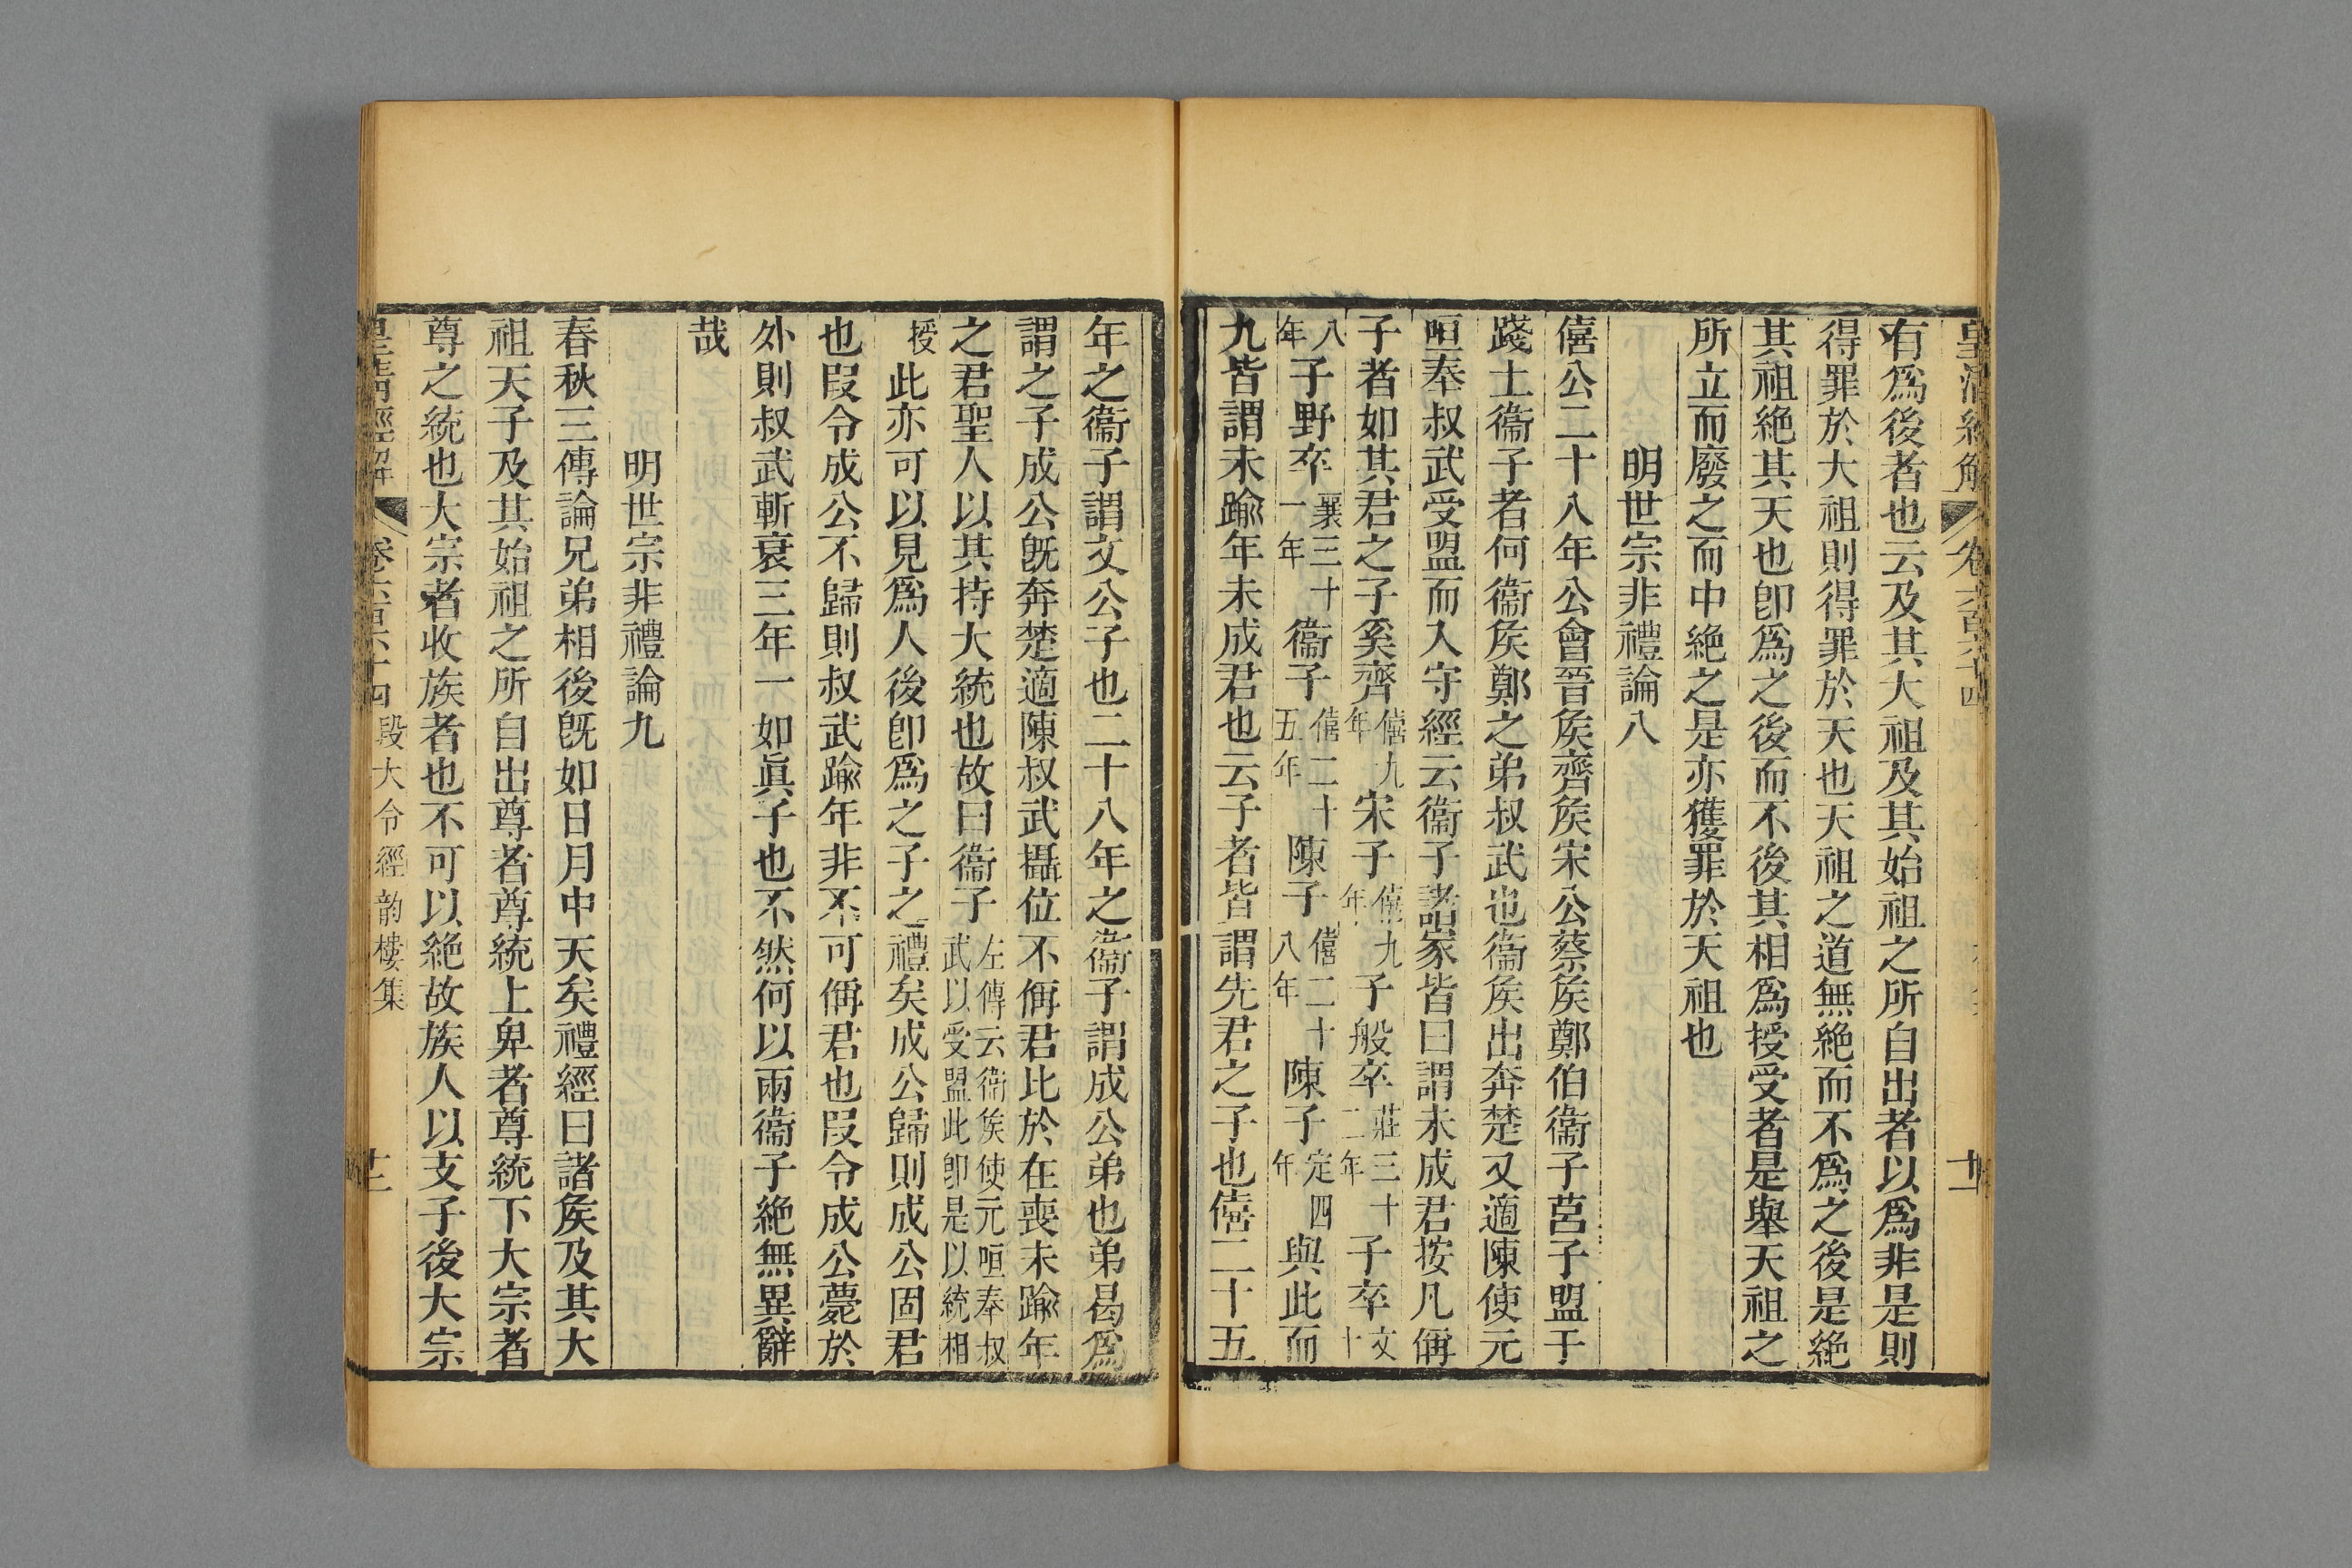 皇清經解 卷六百六十四 十一
有爲後者也云及其大祖及其始祖之所自出者以爲非是則
得罪於大祖則得罪於天也天祖之道無絶而不爲之後是絶
其祖絶其天也卽爲之後而不後其相爲授受者是舉天祖之
所立而廢之而中絶之是亦獲罪於天祖也
明世宗非禮論八
僖公二十八年公會晉矦齊矦宋公蔡矦鄭伯衞子莒子盟于
踐土衞子者何衞矦鄭之弟叔武也衞矦出奔楚又適陳使元
咺奉叔武受盟而入守經云衞子諸家皆曰謂未成君按凡偁
子者如其君之子奚齊僖九年宋子僖九年子般卒莊三十二年子卒文十
八年子野卒襄三十一年衞子僖二十五年陳子僖二十八年陳子定四年與此而
九皆謂未踰年未成君也云子者皆謂先君之子也僖二十五
年之衞子謂文公子也二十八年之衞子謂成公弟也弟曷爲
謂之子成公旣奔楚適陳叔武攝位不偁君比於在喪未踰年
之君聖人以其持大統也故曰衞子左傳云衞矦使元咺奉叔武以受盟此卽是以統相
授此亦可以見爲人後卽爲之子之禮矣成公歸則成公固君
也叚令成公不歸則叔武踰年非不可偁君也叚令成公薨於
外則叔武斬衰三年一如眞子也不然何以兩衞子絶無異辭
哉
明世宗非禮論九
春秋三傳論兄弟相後旣如日月中天矣禮經曰諸矦及其大
祖天子及其始祖之所自出尊者尊統上卑者尊統下大宗者
尊之統也大宗者收族者也不可以絶故族人以支子後大宗
皇清經解 卷六百六十四 段大令經韵樓集 十二